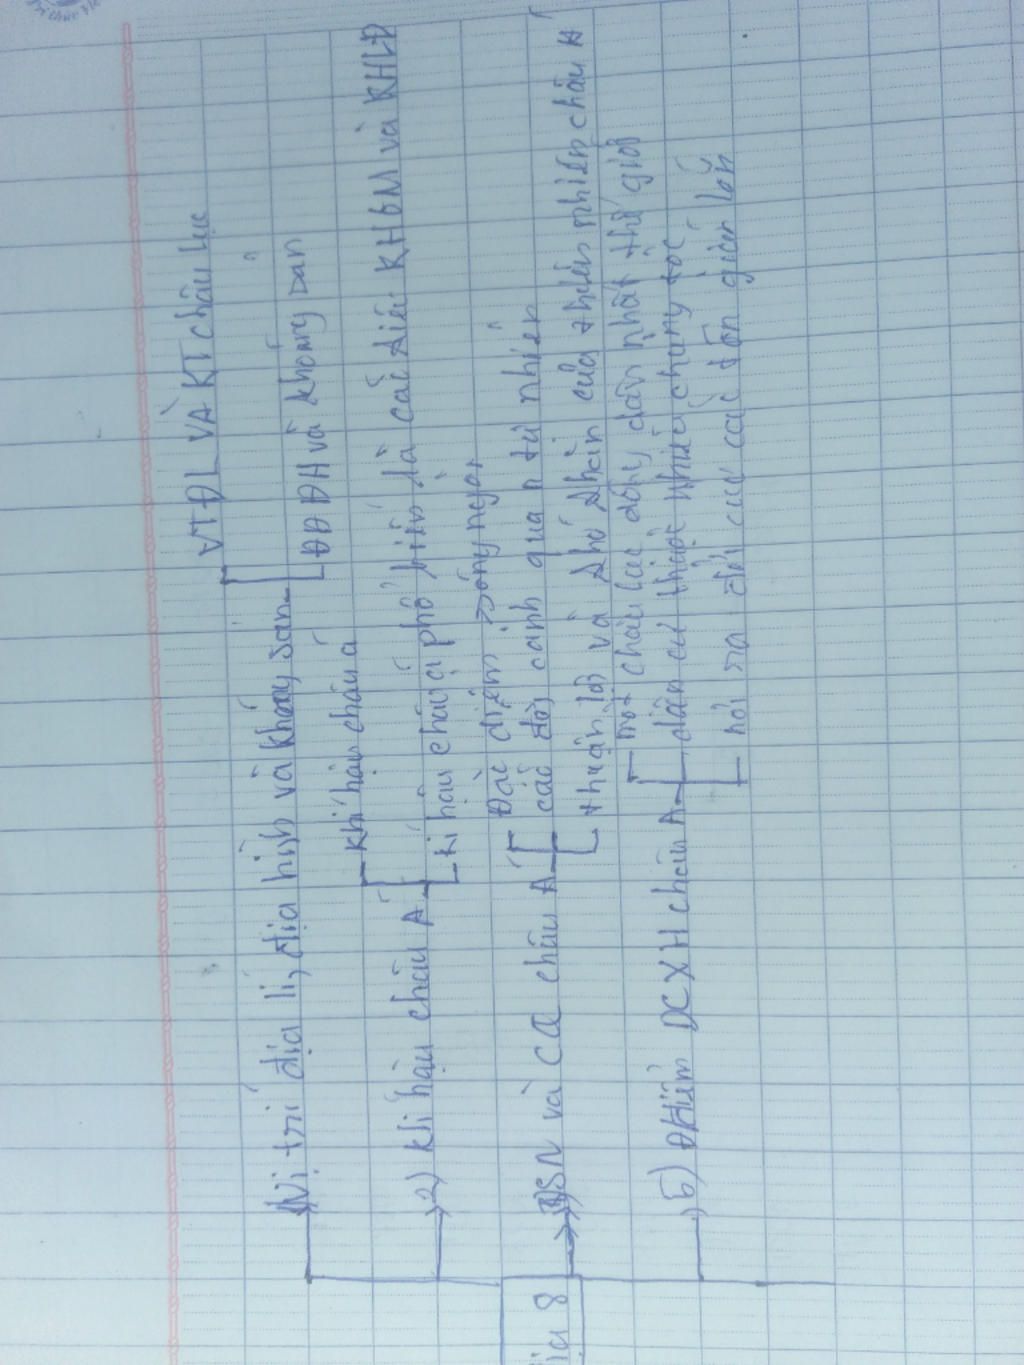 VTĐL VÀ KT châu lục
1) Vị trí địa lí, địa hình và khoáng sản
ĐĐĐH và khoáng sản
khí hậu châu á
2) khí hậu châu Á
kí hậu châu á phổ biến là các kiểu KHGM và KHLĐ
Đặc điểm sông ngòi
3) SN và CQ châu Á
các đới cảnh quan tự nhiên
thuận lợi và khó khăn của thiên nhiên châu Á
một châu lục đông dân nhất thế giới
5) ĐĐiểm DCXH châu Á
dân cư thuộc nhiều chủng tộc
nơi ra đời của các tôn giáo lớn
ịa 8